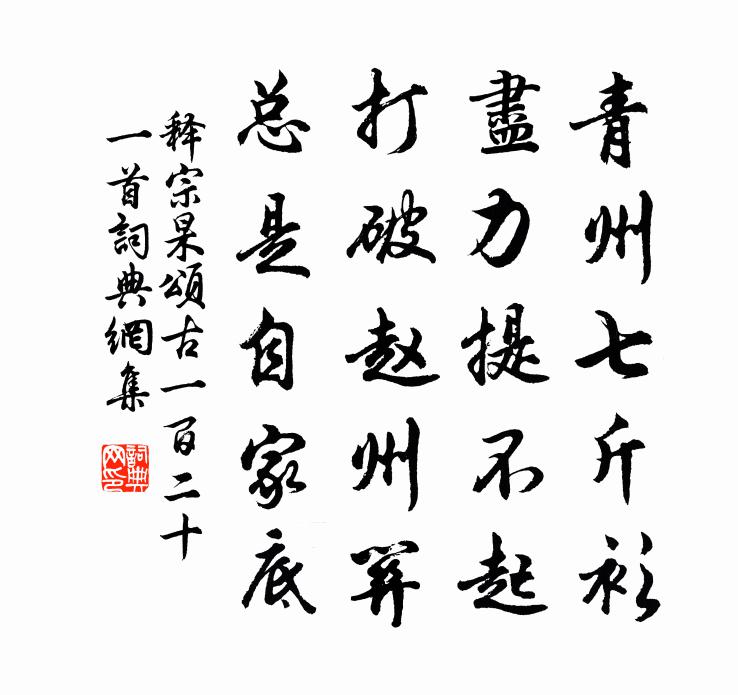 青州七斤衫
盡力提不起
打破赵州關
总是自家底
释宗杲頌古一百二十
一首詞典網集
詞典網印